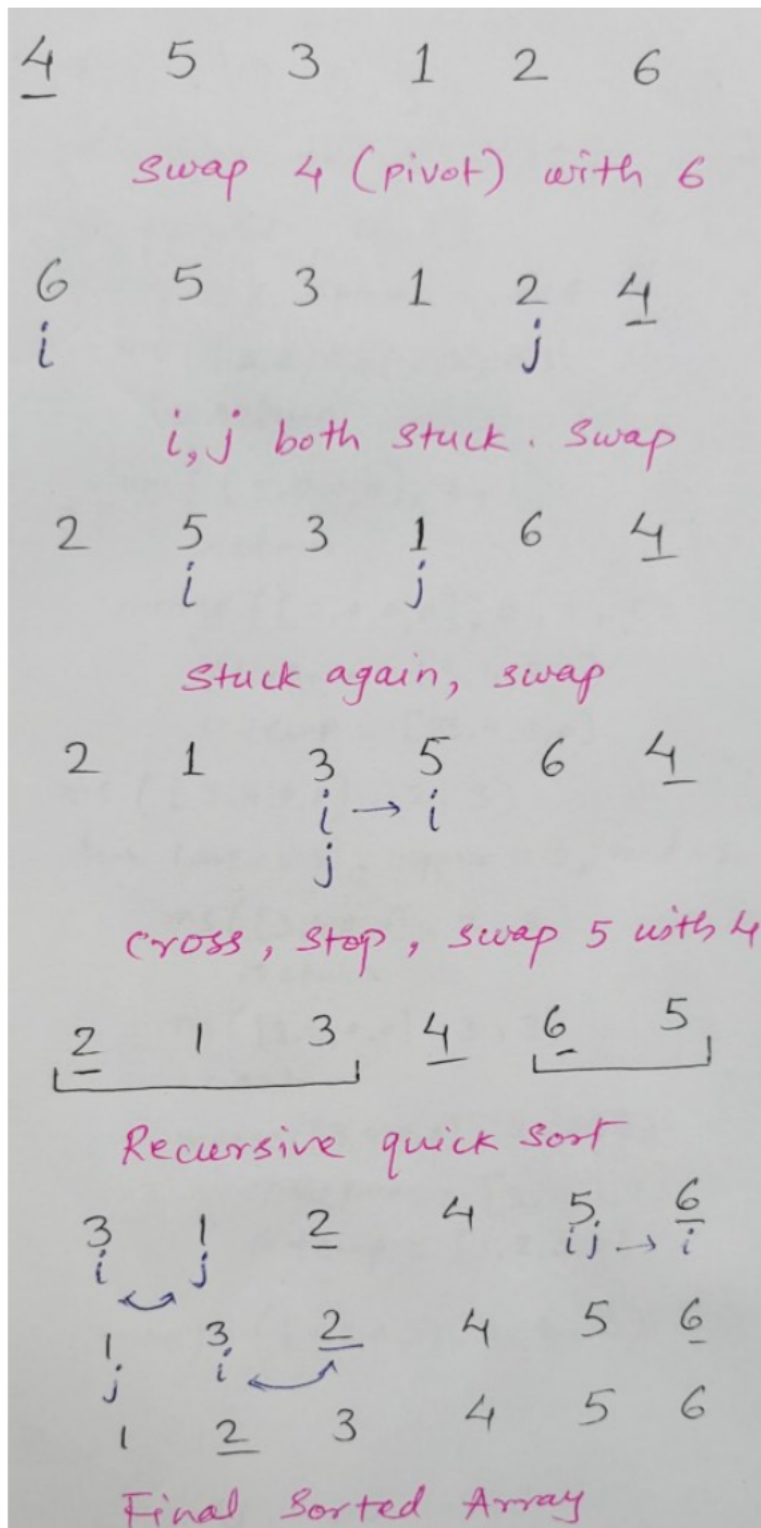 4 5 3 1 2 6
Swap 4 (pivot) with 6
6 5 3 1 2 4
i j
i, j both stuck. Swap
2 5 3 1 6 4
i j
Stuck again, swap
2 1 3 5 6 4
i → i
j
Cross, Stop, Swap 5 with 4
2 1 3 4 6 5
Recursive quick Sort
3 1 2 4 5 6
i j i j → i
1 3 2 4 5 6
j i
1 2 3 4 5 6
Final Sorted Array